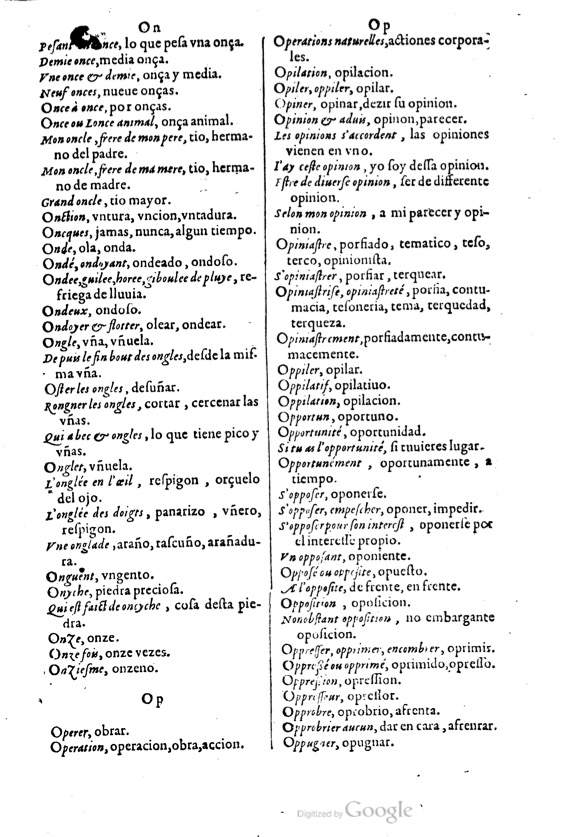 On
Pesant once, lo que pesa vna onça.
Demie once, media onça.
Vne once & demie, onça y media.
Neuf onces, nueue onças.
Once à once, por onças.
Once ou Lonce animal, onça animal.
Mon oncle, frere de mon pere, tio, herma-
no del padre.
Mon oncle, frere de ma mere, tio, herma-
no de madre.
Grand oncle, tio mayor.
Onction, vntura, vncion, vntadura.
Oncques, jamas, nunca, algun tiempo.
Onde, ola, onda.
Ondé, ondoyant, ondeado, ondoso.
Ondee, guilee, horee, giboulee de pluye, re-
friega de lluuia.
Ondeux, ondoso.
Ondoyer & flotter, olear, ondear.
Ongle, vña, vñuela.
Depuis le fin bout des ongles, desde la mis-
ma vña.
Oster les ongles, desuñar.
Rongner les ongles, cortar, cercenar las
vñas.
Qui a bec & ongles, lo que tiene pico y
vñas.
Onglet, vñuela.
L'onglée en l'œil, respigon, orçuelo
del ojo.
L'onglée des doigts, panarizo, vñero,
respigon.
Vne onglade, araño, rascuño, arañadu-
ra.
Onguent, vngento.
Onyche, piedra preciosa.
Qui est faict de onyche, cosa desta pie-
dra.
Onze, onze.
Onze fois, onze vezes.
Onziesme, onzeno.
Op
Operer, obrar.
Operation, operacion, obra, accion.
Op
Operations naturelles, actiones corpora-
les.
Opilation, opilacion.
Opiler, oppiler, opilar.
Opiner, opinar, dezir su opinion.
Opinion & aduis, opinon, parecer.
Les opinions s'accordent, las opiniones
vienen en vno.
I'ay ceste opinion, yo soy dessa opinion.
Estre de diuerse opinion, ser de differente
opinion.
Selon mon opinion, a mi parecer y opi-
nion.
Opiniastre, porfiado, tematico, teso,
terco, opinionista.
S'opiniastrer, porfiar, terquear.
Opiniastrise, opiniastreté, porfia, contu-
macia, tesoneria, tema, terquedad,
terqueza.
Opiniastrement, porfiadamente, contu-
macemente.
Oppiler, opilar.
Oppilatif, opilatiuo.
Oppilation, opilacion.
Opportun, oportuno.
Opportunité, oportunidad.
Si tu as l'opportunité, si tuuieres lugar.
Opportunement, oportunamente, a
tiempo.
S'opposer, oponerse.
S'opposer, empescher, oponer, impedir.
S'opposer pour son interest, oponerse por
el interesse propio.
Vn opposant, oponiente.
Opposé ou opposite, opuesto.
A l'opposite, de frente, en frente.
Opposition, oposicion.
Nonobstant opposition, no embargante
oposicion.
Oppresser, opprimer, encombrer, oprimir.
Oppressé ou opprimé, oprimido, opresso.
Oppression, opression.
Oppresseur, opressor.
Opprobre, oprobrio, afrenta.
Opprobrier aucun, dar en cara, afrenrar.
Oppugner, opugnar.
Digitized by Google